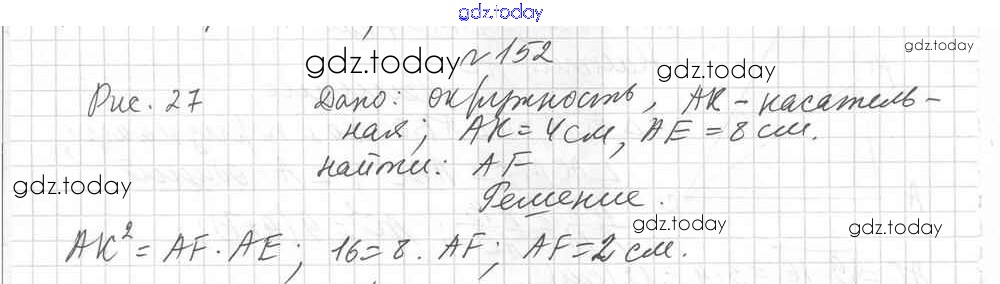 gdz.today
gdz.today
№ 152
gdz.today
gdz.today
Рис. 27 Дано: окружность, AK - касатель-
ная; AK = 4 см, AE = 8 см.
найти: AF
gdz.today
Решение.
gdz.today
gdz.today
AK² = AF · AE; 16 = 8 · AF; AF = 2 см.